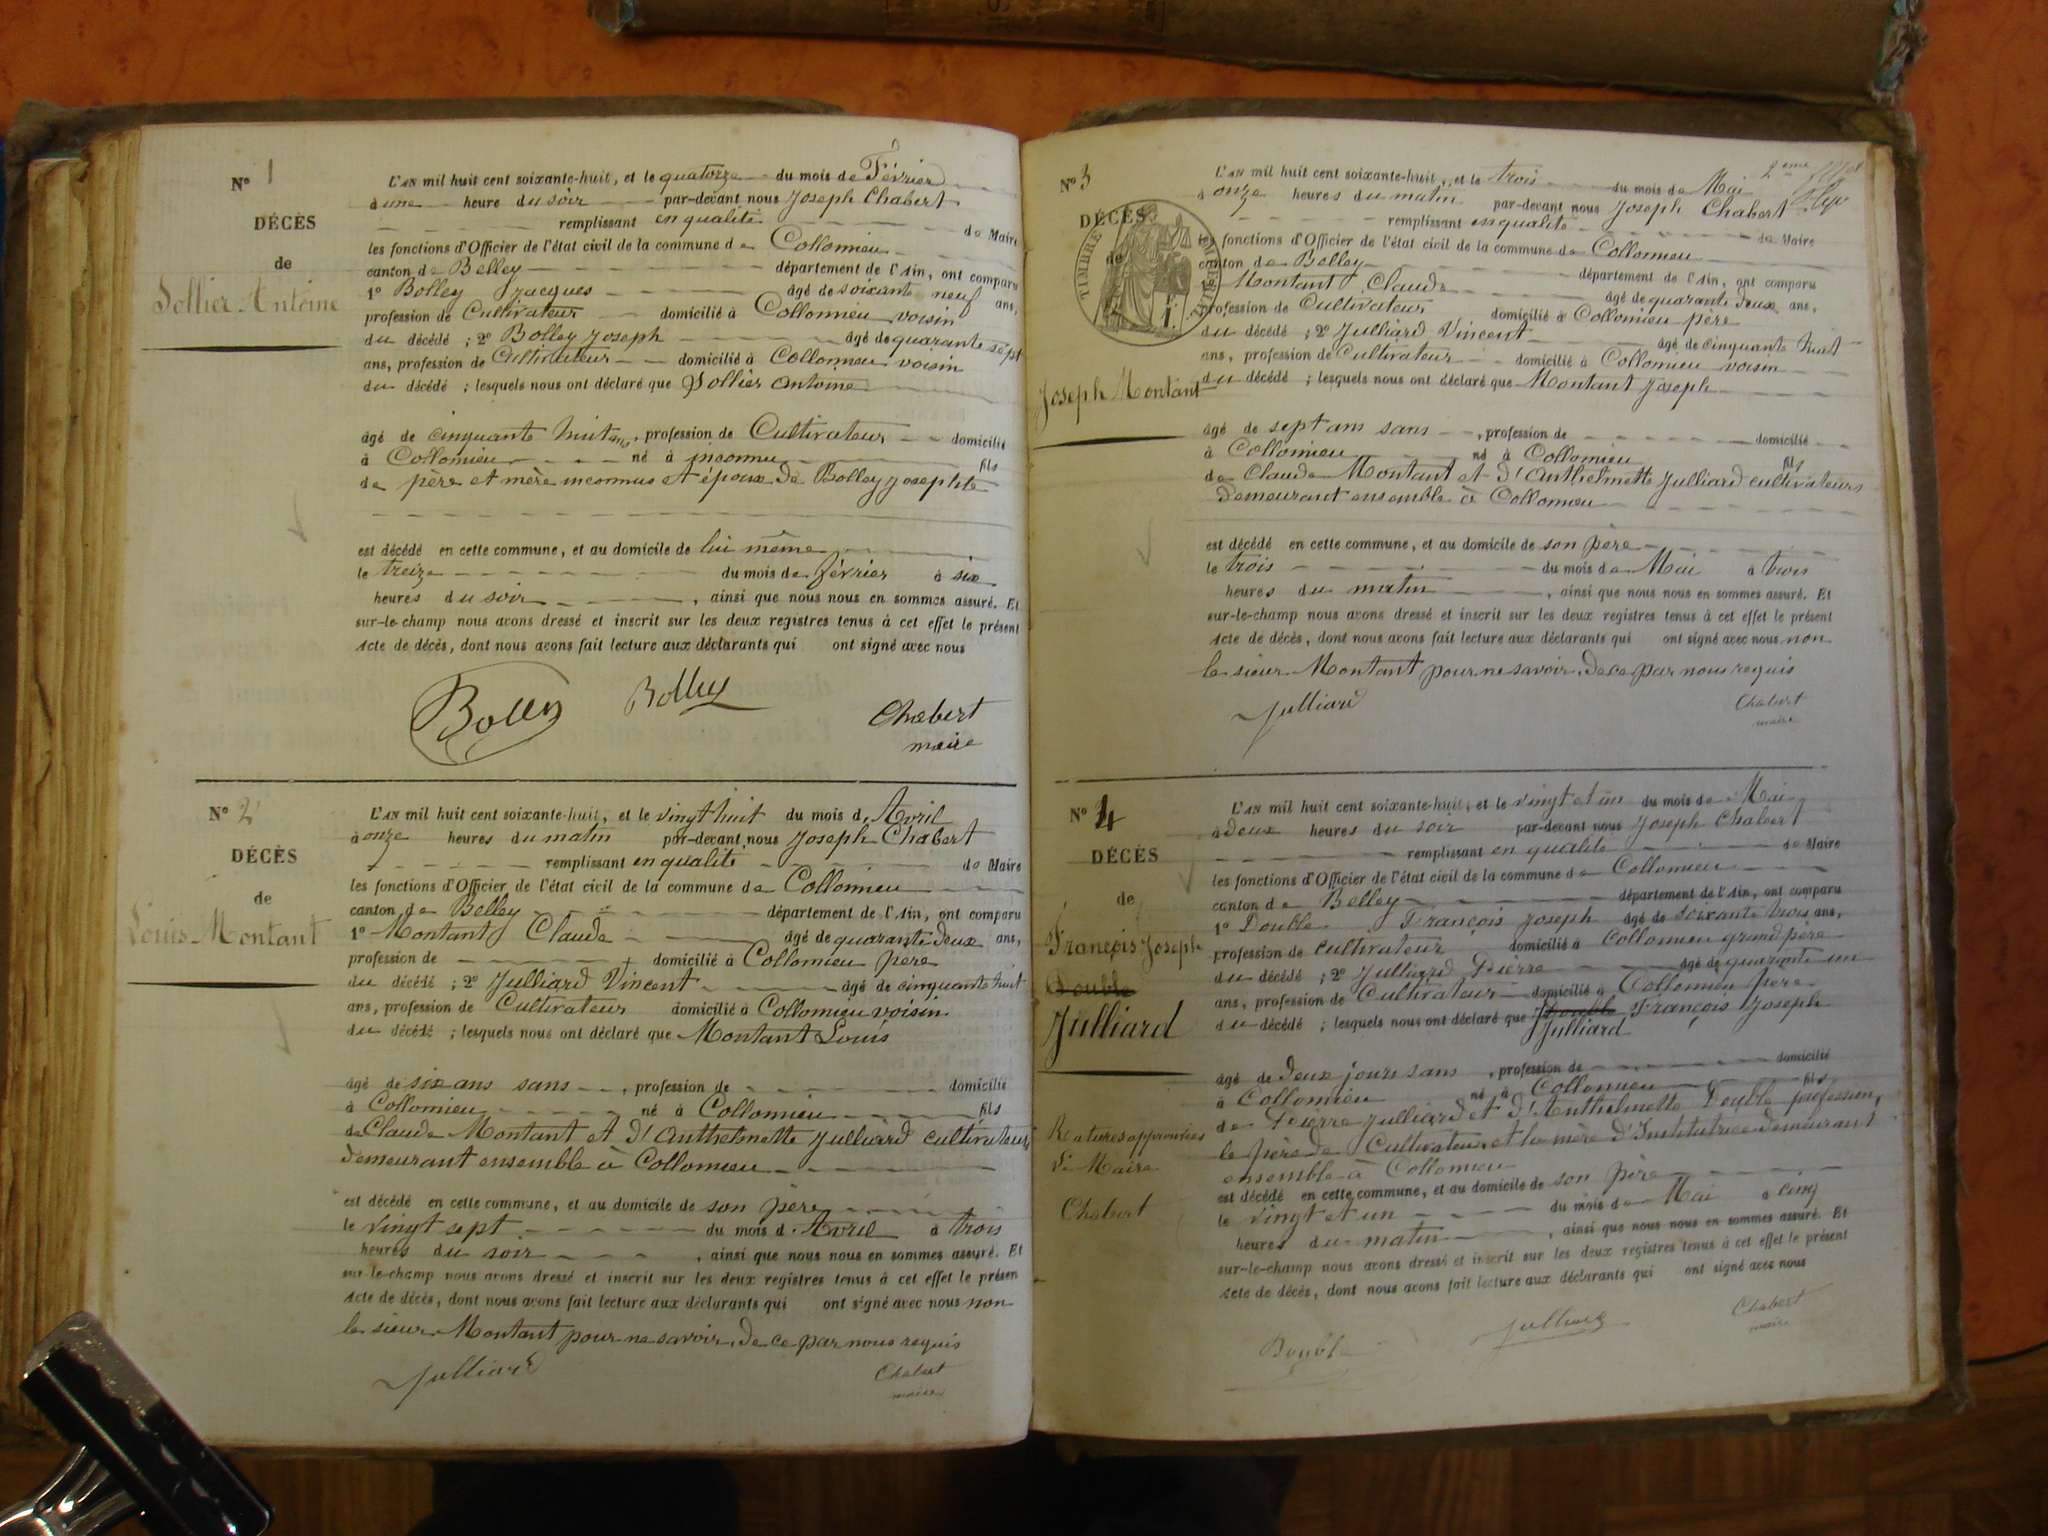 N° 1
DÉCÈS
de
Sollier Antoine
L'AN mil huit cent soixante-huit, et le quatorze du mois de Février
à une heure du soir par-devant nous Joseph Chabert
remplissant en qualité de Maire
les fonctions d'Officier de l'état civil de la commune de Collomieu
canton de Belley département de l'Ain, ont comparu
1° Bolley Jacques âgé de soixante neuf ans,
profession de Cultivateur domicilié à Collomieu voisin
du décédé ; 2° Bolley Joseph âgé de quarante sept
ans, profession de Cultivateur domicilié à Collomieu voisin
du décédé ; lesquels nous ont déclaré que Sollier Antoine
âgé de cinquante huit ans, profession de Cultivateur domicilié
à Collomieu né à inconnu fils
de père et mère inconnus et époux de Bolley Josephte
est décédé en cette commune, et au domicile de lui même
le treize du mois de février à six
heures du soir, ainsi que nous nous en sommes assuré. Et
sur-le-champ nous avons dressé et inscrit sur les deux registres tenus à cet effet le présent
Acte de décès, dont nous avons fait lecture aux déclarants qui ont signé avec nous
Bolley Bolley Chabert
maire
N° 2
DÉCÈS
de
Louis Montant
L'AN mil huit cent soixante-huit, et le vingt huit du mois d'Avril
à onze heures du matin par-devant nous Joseph Chabert
remplissant en qualité de Maire
les fonctions d'Officier de l'état civil de la commune de Collomieu
canton de Belley département de l'Ain, ont comparu
1° Montant Claude âgé de quarante deux ans,
profession de domicilié à Collomieu père
du décédé ; 2° Julliard Vincent âgé de cinquante huit
ans, profession de Cultivateur domicilié à Collomieu voisin
du décédé ; lesquels nous ont déclaré que Montant Louis
âgé de six ans sans, profession de domicilié
à Collomieu né à Collomieu fils
de Claude Montant et d'Anthelmette Julliard cultivateurs
demeurant ensemble à Collomieu
est décédé en cette commune, et au domicile de son père
le vingt sept du mois d'Avril à trois
heures du soir, ainsi que nous nous en sommes assuré. Et
sur-le-champ nous avons dressé et inscrit sur les deux registres tenus à cet effet le présen
Acte de décès, dont nous avons fait lecture aux déclarants qui ont signé avec nous non
le sieur Montant pour ne savoir, de ce par nous requis
Julliard Chabert
maire
2eme
N° 3
DÉCÈS
de
TIMBRE IMPÉRIAL
1 F.
Joseph Montant
L'AN mil huit cent soixante-huit, et le trois du mois de Mai
à onze heures du matin par-devant nous Joseph Chabert
remplissant en qualité de Maire
les fonctions d'Officier de l'état civil de la commune de Collomieu
canton de Belley département de l'Ain, ont comparu
1° Montant Claude âgé de quarante deux ans,
profession de Cultivateur domicilié à Collomieu père
du décédé ; 2° Julliard Vincent âgé de cinquante huit
ans, profession de Cultivateur domicilié à Collomieu voisin
du décédé ; lesquels nous ont déclaré que Montant Joseph
âgé de sept ans sans, profession de domicilié
à Collomieu né à Collomieu fils
de Claude Montant et d'Anthelmette Julliard cultivateurs
demeurant ensemble à Collomieu
est décédé en cette commune, et au domicile de son père
le trois du mois de Mai à trois
heures du matin, ainsi que nous nous en sommes assuré. Et
sur-le-champ nous avons dressé et inscrit sur les deux registres tenus à cet effet le présent
Acte de décès, dont nous avons fait lecture aux déclarants qui ont signé avec nous non
le sieur Montant pour ne savoir, de ce par nous requis
Julliard Chabert
maire
N° 4
DÉCÈS
de
François Joseph
Double
Julliard
Ratures approuvées
Le Maire
Chabert
L'AN mil huit cent soixante-huit, et le vingt et un du mois de Mai
à deux heures du soir par-devant nous Joseph Chabert
remplissant en qualité de Maire
les fonctions d'Officier de l'état civil de la commune de Collomieu
canton de Belley département de l'Ain, ont comparu
1° Double François Joseph âgé de soixante trois ans,
profession de cultivateur domicilié à Collomieu grand père
du décédé ; 2° Julliard Pierre âgé de quarante un
ans, profession de Cultivateur domicilié à Collomieu père
du décédé ; lesquels nous ont déclaré que Double François Joseph
Julliard
âgé de deux jours sans, profession de domicilié
à Collomieu né à Collomieu fils
de Pierre Julliard et d'Anthelmette Double profession,
le père de Cultivateur et la mère d'Institutrice demeurant
ensemble à Collomieu
est décédé en cette commune, et au domicile de son père
le vingt et un du mois de Mai à cinq
heures du matin, ainsi que nous nous en sommes assuré. Et
sur-le-champ nous avons dressé et inscrit sur les deux registres tenus à cet effet le présent
Acte de décès, dont nous avons fait lecture aux déclarants qui ont signé avec nous
Double Julliard Chabert
maire